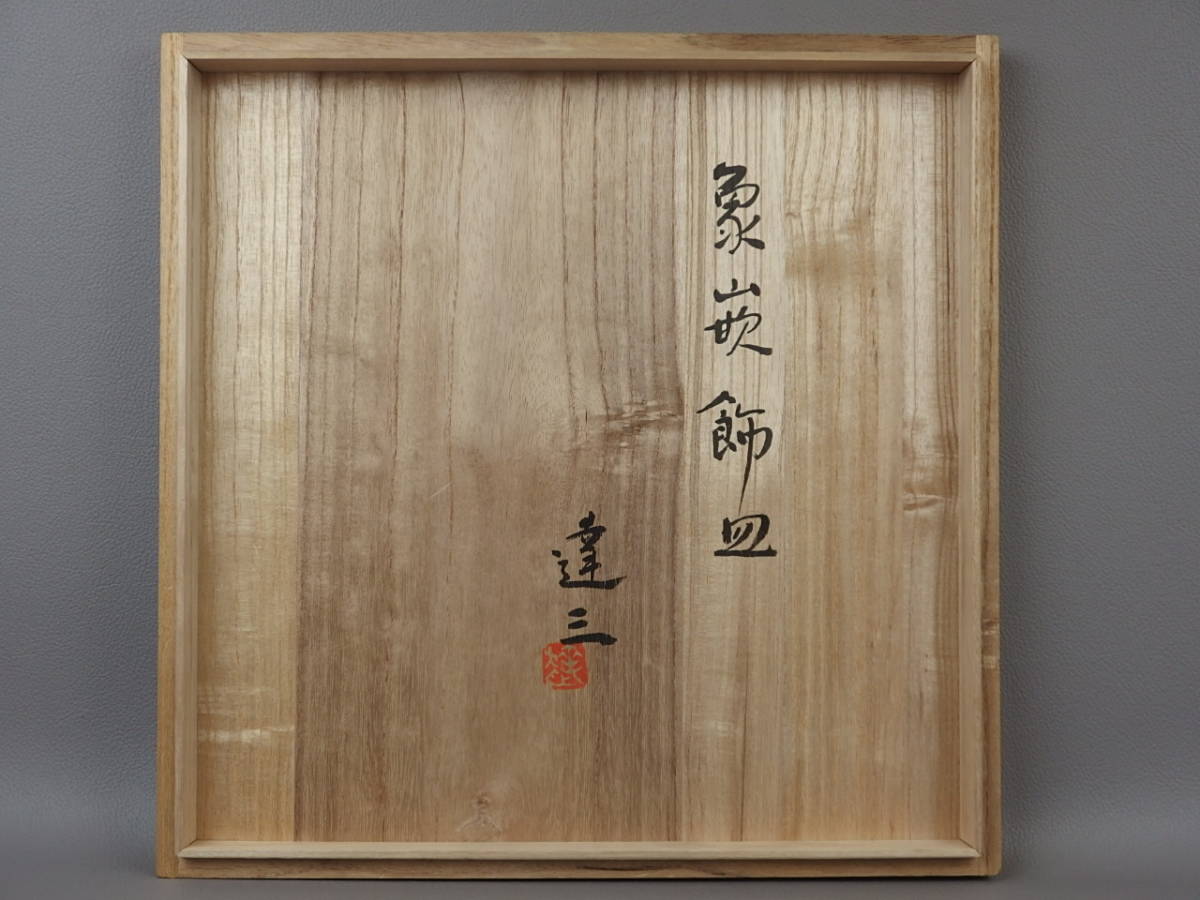 象嵌飾皿
達三